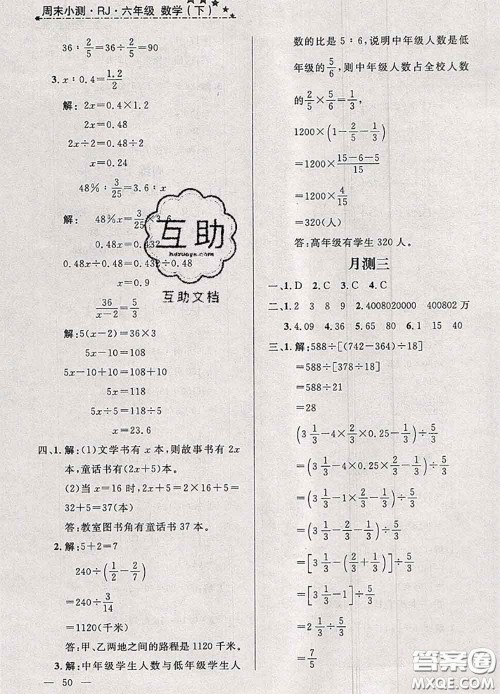 周末小测·RJ·六年级 数学(下)
3. x/0.4=1.2/2
解: 2x=0.4×1.2
2x=0.48
2x÷2=0.48÷2
x=0.24
48%:3/25=3.6:x
解: 48%x=3/25×3.6
0.48x=0.432
0.48x÷0.48=0.432÷0.48
x=0.9
36/(x-2)=5/3
解: 5(x-2)=36×3
5x-10=108
5x-10+10=108+10
5x=118
5x÷5=118÷5
x=23.6
四、1.解:(1)文学书有 x 本,则故事书有 2x
本,童话书有(2x+5)本。
(2)当 x=16 时,2x+5=2×16+5=
32+5=37(本)
答:教室图书角有童话书 37 本。
2.解:5+2=7
240÷(1/2-2/7)
=240÷3/14
=1120(千米)
答:甲、乙两地之间的路程是 1120 千米。
3.解:中年级学生人数与低年级学生人
— 50 —
数的比是 5:6,说明中年级人数是低
年级的5/6,则中年级人数占全校人数
的2/5×5/6=1/3
1200×(1-2/5-1/3)
=1200×(15-6-5)/15
=1200×4/15
=320(人)
答:高年级有学生 320 人。
月测三
一、1.D 2.C 3.C 4.C
二、1. 2 3 8 9 2. 4008020000 400802万
3. 4.09 4. 16 5. 15 6. 10
三、1.解:588÷[(742-364)÷18]
=588÷[378÷18]
=588÷21
=28
(3 1/3-2/3-1/3)÷5/3
=(3 1/3-2/3-1/3)÷5/3
=[3 1/3-(2/3+1/3)]÷5/3
=[3 1/3-1]÷5/3
=2 1/3÷5/3
=7/5
互助
huzuoye.com
互助文档
答案圈
MXQE.COM